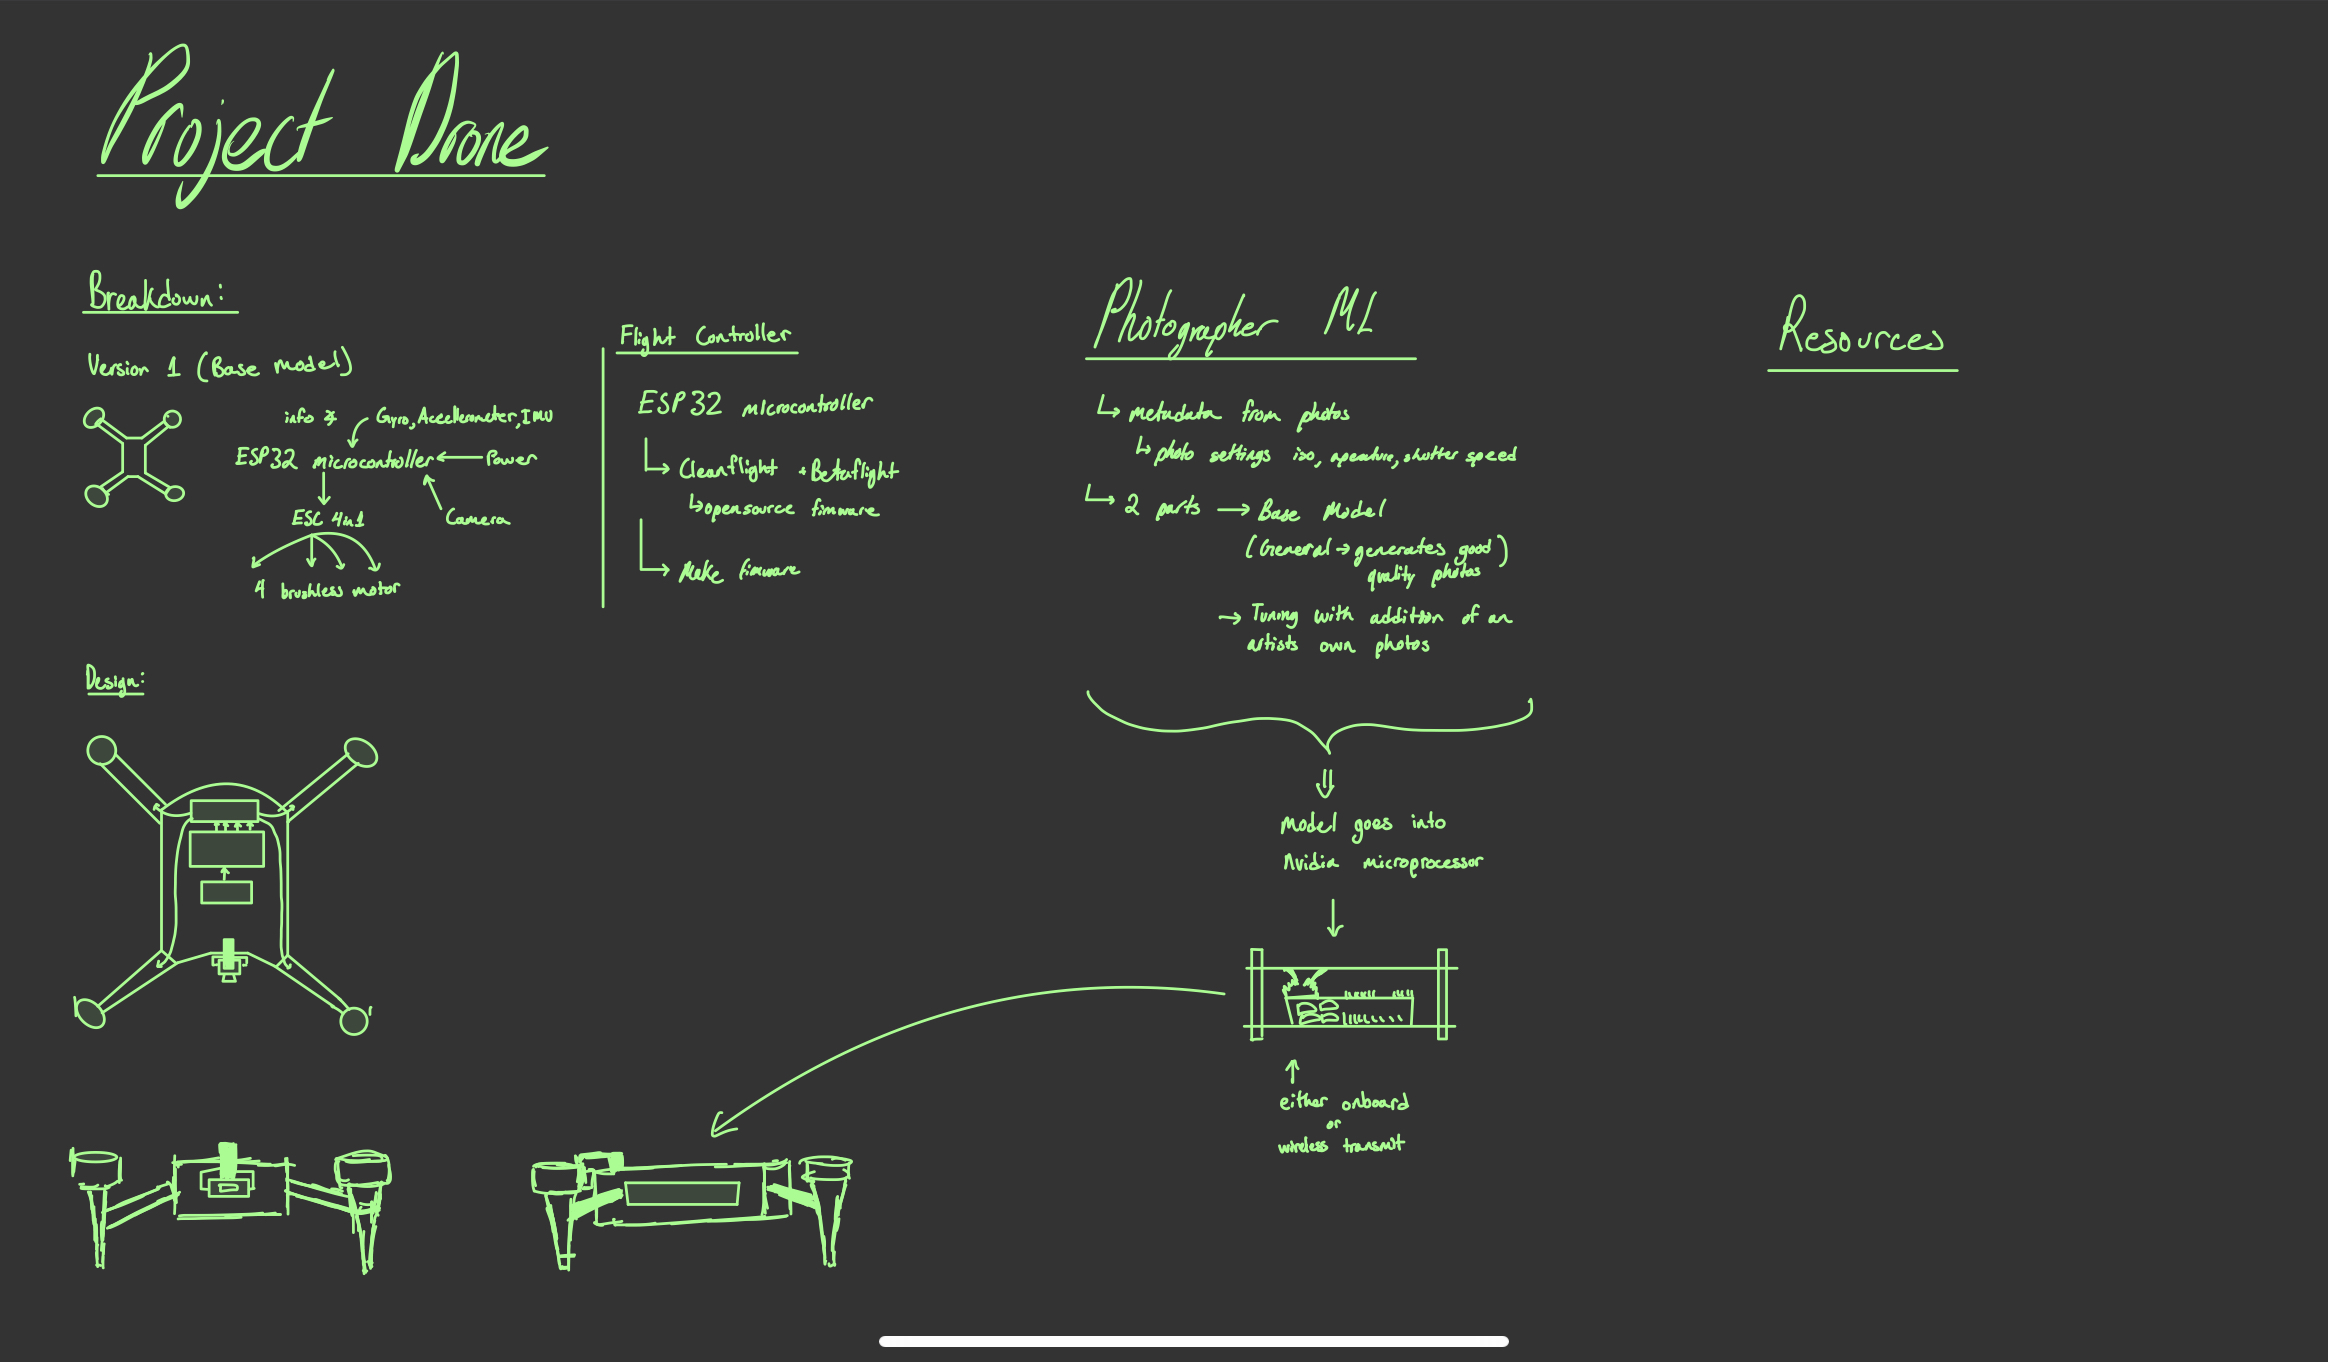 Project Drone
Breakdown:
Version 1 (Base model)
info → Gyro, Accellerometer, IMU
ESP32 microcontroller ← Power
ESC 4in1
Camera
4 brushless motor
Flight Controller
ESP32 microcontroller
Cleanflight + Betaflight
↳ opensource fimware
Make fimware
Design:
Photographer ML
↳ metadata from photos
↳ photo settings iso, aperature, shutter speed
↳ 2 parts → Base Model
(General → generates good
quality photos)
→ Tuning with addition of an
artists own photos
Model goes into
Nvidia microprocessor
either onboard
or
wireless transmit
Resources